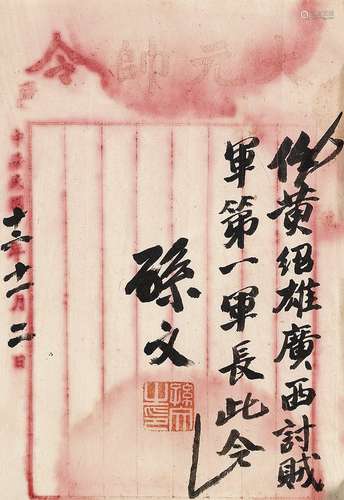 大元帥令
任黄紹雄廣西討賊
軍第一軍長此令
孫文
孫文之印
中華民國十二年十一月二日